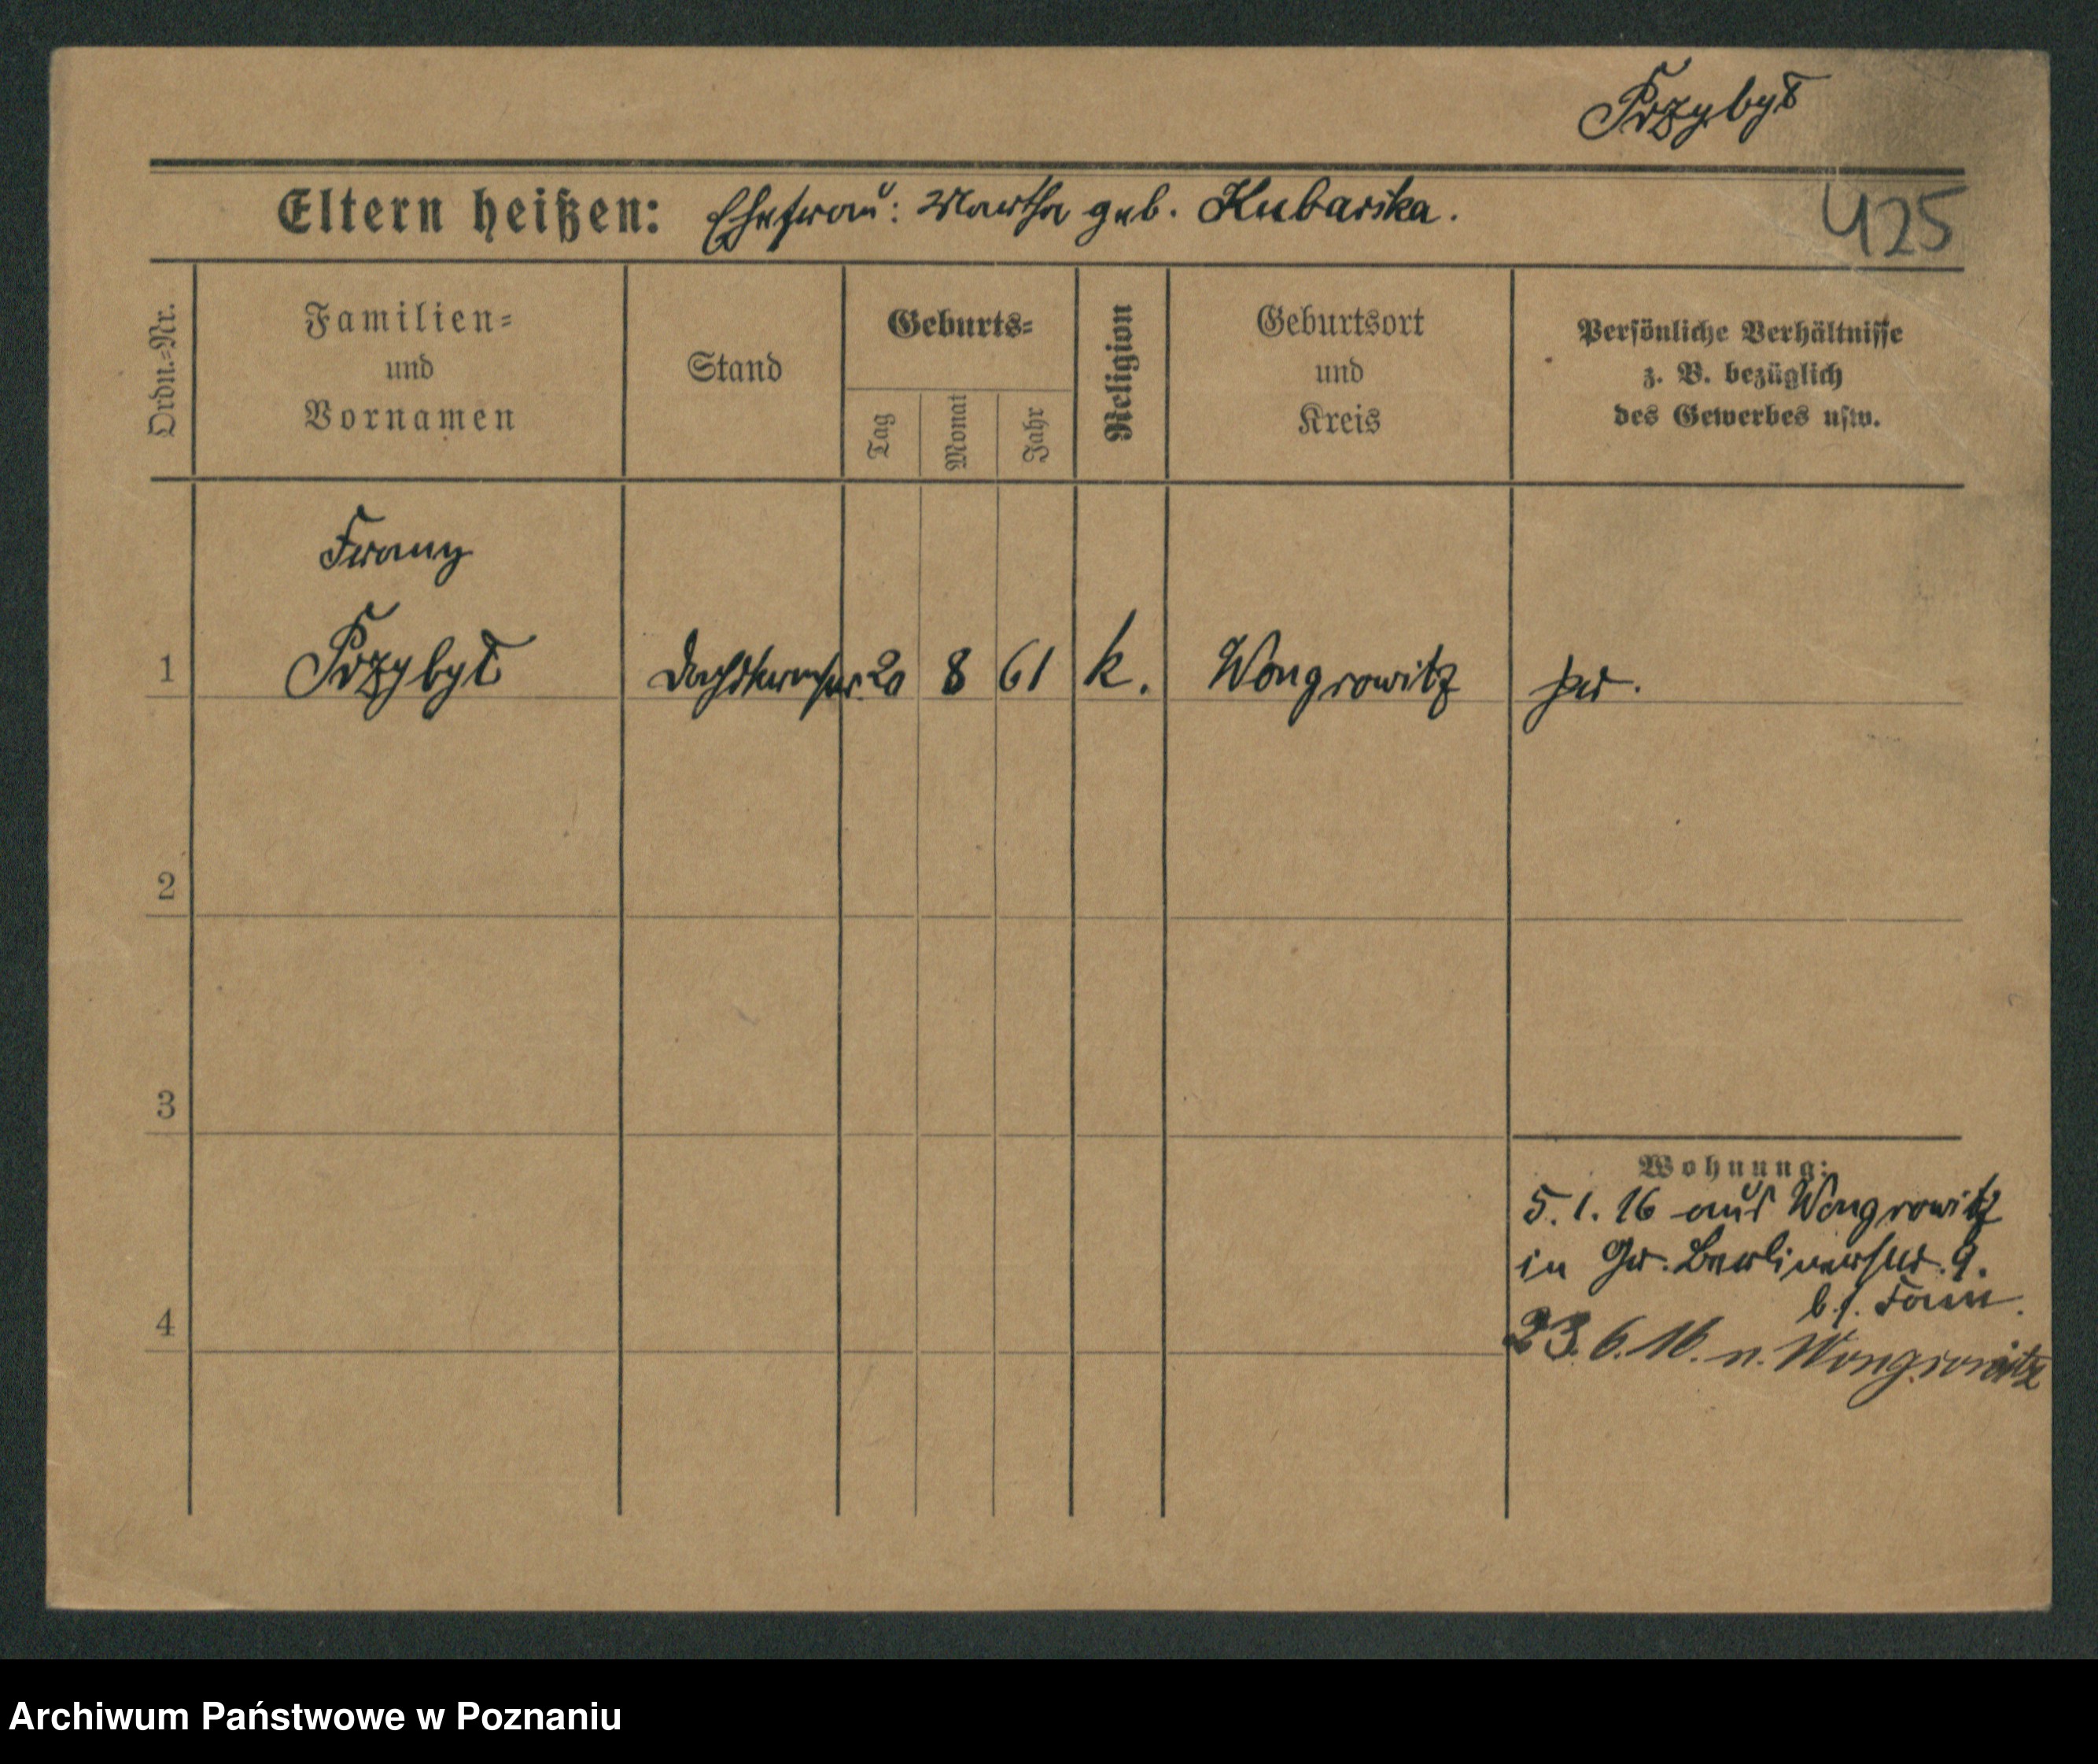 Przybył
Eltern heißen: Ehefrau: Martha geb. Kubarska.
425
Ordn.=Nr.
Familien=
und
Vornamen
Stand
Geburts=
Tag
Monat
Jahr
Religion
Geburtsort
und
Kreis
Persönliche Verhältnisse
z. B. bezüglich
des Gewerbes usw.
Franz
1 Przybył 20 8 61 k. Wongrowitz
2
3
Wohnung:
5.1.16 aus Wongrowitz
in Gr. Berlinerstr. 9.
4
23.6.16. n. Wongrowitz
Archiwum Państwowe w Poznaniu